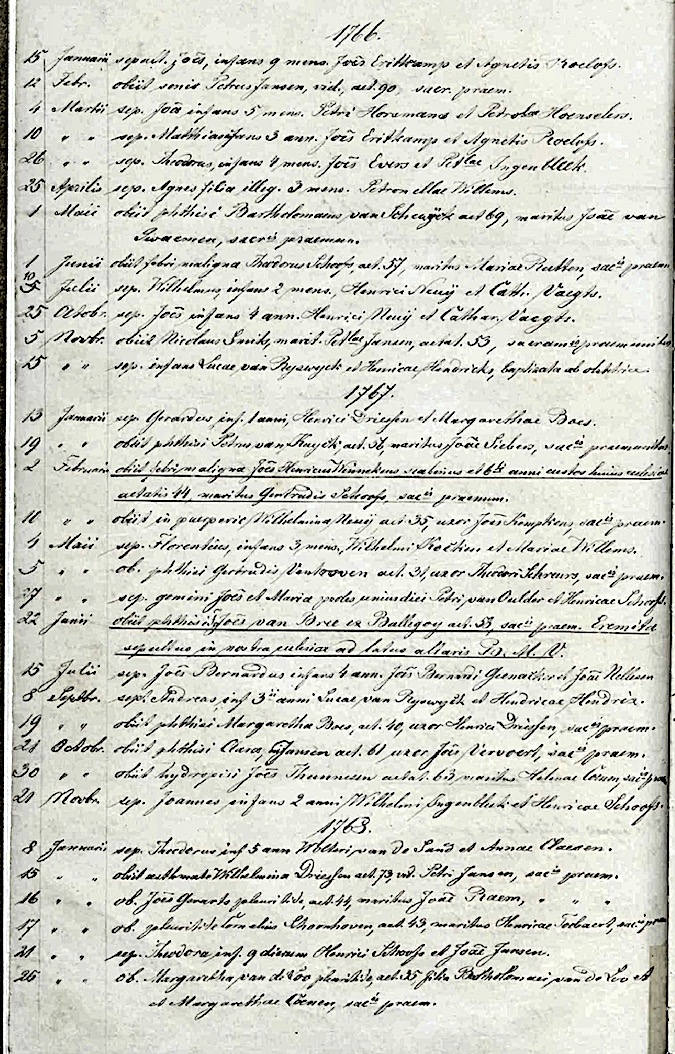 1766.
15 Januarii sepult. Joēs, infans 9 mens. Joēs Eritkamp et Agnetis Roelofs.
12 Febr. obiit senis Petrus Jansen, vid., aet. 90, sacr. praem.
4 Martii sep. Joēs infans 5 mens. Petri Horsmans et Petronellae
10 " " sep. Matthias infans 3 ann. Joēs Eritkamp et Agnetis Roelofs.
26 " " sep. Theodorus, infans 4 mens. Joēs Evers et Petlae Ingenbleek.
25 Aprilis sep. Agnes filia illeg. 3 mens. Petronellae Willems.
1 Maii obiit phthisi Bartholomaeus van aet 69, maritus Joāē van
sacris praemun.
1 Junii obiit febri maligna Theodorus Schoofs, aet. 57, maritus Mariae Rutten, sacis praemun
10
5 Julii sep. Wilhelmus, infans 2 mens., Henrici Neuÿ et Cath. Vaegts.
25 Octobr. sep. Joēs infans 4 ann. Henrici Neuÿ et Cathar. Vaegts.
5 Novbr. obiit Nicolaus Smits, marit. Petlae Jansen, aetat. 53, sacramis praemunitus
15 " " sep. infans Lucae van Reyswyck et Henricae Hendricks, baptizata ab obstetrice
1767.
13 Januarii sep. Gerardus inf. 1 anni, Henrici Driessen et Margarethae Baes.
19 " " obiit phthisi Petrus van aet. 56, maritus Joāē Siebers, sacis praemunitus
2 Februarii obiit febri maligna Joēs Henricus scabinus et 6 anni custos huius ecclesiae
aetatis 44 maritus Gertrudis Schoofs, sacis praemun.
10 " " obiit in puerperio Wilhelmina Neuÿ aet 35, uxor Joēs Kempkens, sacis praem.
4 Maii sep. Florentius, infans 3 mens. Wilhelmi et Mariae Willems.
5 " " ob. phthisi Gertrudis Venhoven aet. 31, uxor Theodori Schreurs, sacis praem.
27 " " sep. gemini Joēs et Maria proles unius diei Petri van Oulder et Henricae Schoofs.
22 Junii obiit phthisis Joēs van Bree ex Balligoy aet. 53, sacis praem. Eremita
sepultus in nostra ecclesia ad latus altaris B. M. V.
15 Julii sep. Joēs Bernardus infans 4 ann. Joēs Bernardi et Joāē Nelissen
8 Septbr. sept. Andreas inf 3ii anni Lucae van Reyswyck et Hendricae Hendrix.
19 " " obiit phthisi Margaretha Baes, aet. 40, uxor Henrici Driessen, sacis praem.
21 Octobr. obiit phthisi Clara Jansen aet. 61 uxor Joēs Vervoert, sacis praem.
30 " " obiit hydropisi Joēs Theunissen aetat. 63 maritus Helenae Coenen, sacis prae
21 Novbr. sep. Joannes infans 2 anni Wilhelmi Ingenbleek et Henricae Schoofs.
1768.
8 Januarii sep. Theodorus inf 5 ann Wolteri van de Sand et Annae Claesen.
15 " " obiit asthmate Wilhelmina Driessen aet. 73, vid. Petri Jansen, sacis praem.
16 " " ob. Joēs Gerarts pleuritide, aet. 44, maritus Joāē Praem, " " "
17 " " ob. pleuritide Cornelius Schoonhoven, aet. 43, maritus Henricae sacis prae
21 " " sep. Theodora inf. 9 dierum Henrici Schoofs et Joāē Jansen.
26 " " ob. Margaretha van de Loo pleuritide, aet. 35 filia Bartholomaei van de Loo
et Margarethae Coenen, sacis praem.